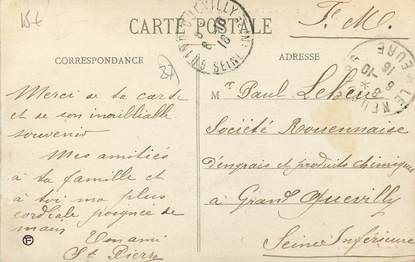 15f
CARTE POSTALE
F. M.
CORRESPONDANCE
ADRESSE
27
Merci de ta carte
et de son inoubliable
souvenir
Mes amitiés
à ta famille et
à toi ma plus
cordiale poignée de
main
Ton ami
St Pierre
Mr Paul
Société Rouennaise
d'engrais et produits chimiques
à Grand Quevilly
Seine Inférieure
F